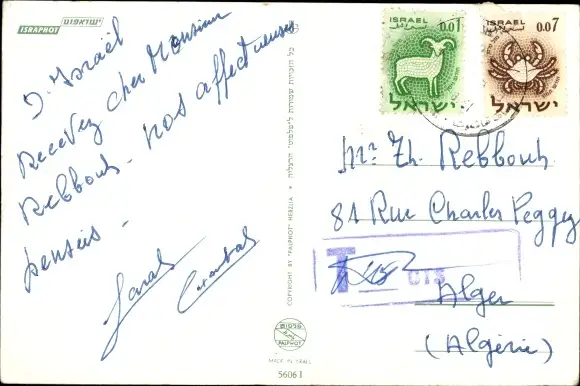 ישראפוט
ISRAPHOT
D'Israël
Recevez cher Monsieur
Rebbouh. Nos affectueuses
pensées.
Sarah
כל הזכויות שמורות ל"פלפוט" הרצליה
COPYRIGHT BY "PALPHOT" HERZLIA
פלפוט
PALPHOT
MADE IN ISRAEL
56061
ISRAEL 0.01
ישראל
ISRAEL 0.07
ישראל
Mr. Th. Rebbouh
81 Rue Charles Peggey
T CTS
Alger
(Algérie)